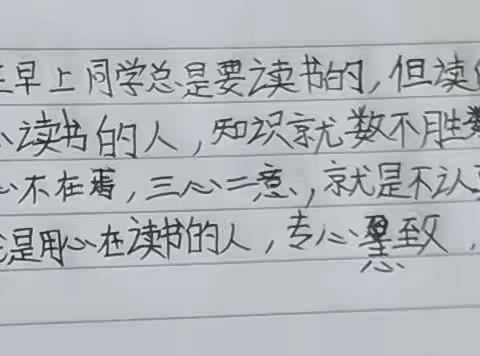 早上同学总是要读书的,但读
读书的人,知识就数不胜数
心不在焉,三心二意,就是不认
是用心在读书的人,专心致